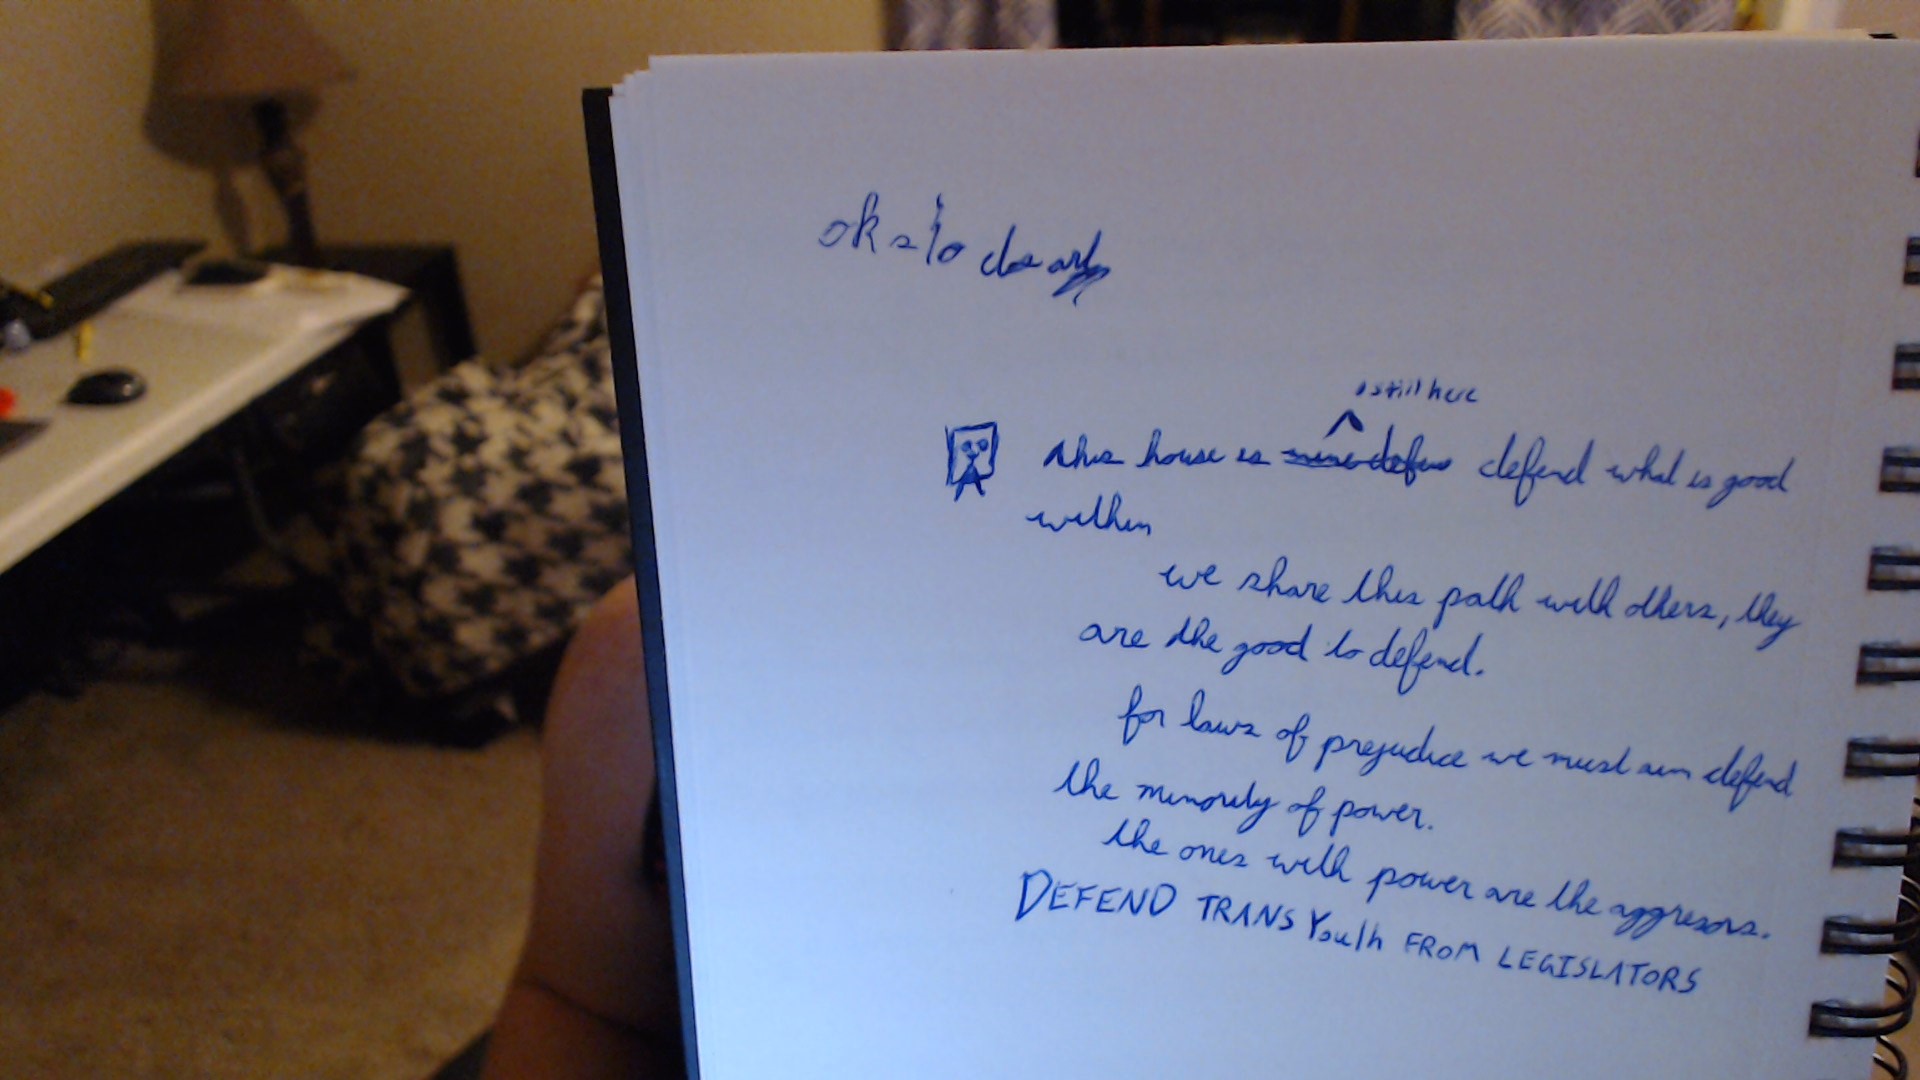 ok so to clearly
still here
this house is mine defen defend what is good
within
we share this path with others, they
are the good to defend.
for laws of prejudice we must aim defend
the minority of power.
the ones with power are the aggresors.
DEFEND TRANS Youth FROM LEGISLATORS